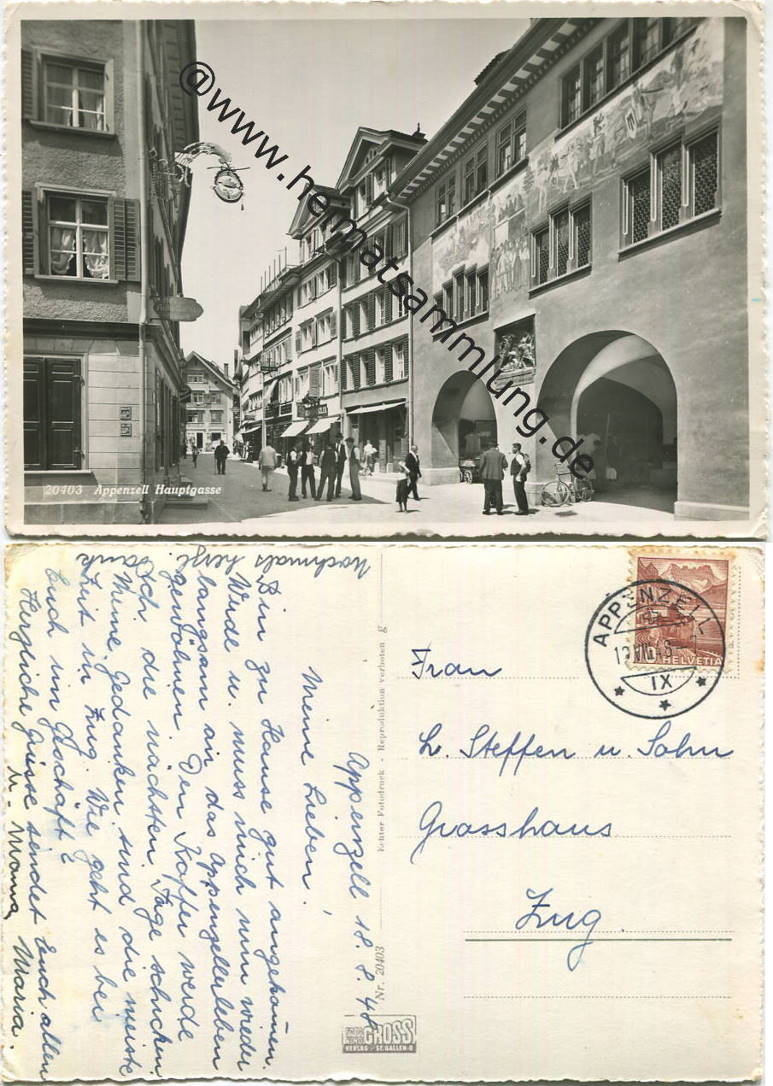 @www.heimatsammlung.de
20403 Appenzell Hauptgasse
Nochmals herzl. Dank
Appenzell 18. 8. 48
Meine Lieben!
Bin zu Hause gut angekommen.
Werde u. muss mich nun wieder
langsam an das Appenzellerleben
gewöhnen. Den Koffer werde
ich die nächsten Tage schicken.
Meine Gedanken sind die meiste
Zeit in Zug. Wie geht es bei
Euch im Geschäft?
Herzliche Grüsse sendet Euch allen
u. Mama, Maria.
Echter Fotodruck - Reproduktion verboten g
Nr. 20403
GROSS
VERLAG / ST. GALLEN-O
APPENZELL
IX
HELVETIA
Frau
L. Steffen u. Sohn
Grosshaus
Zug.